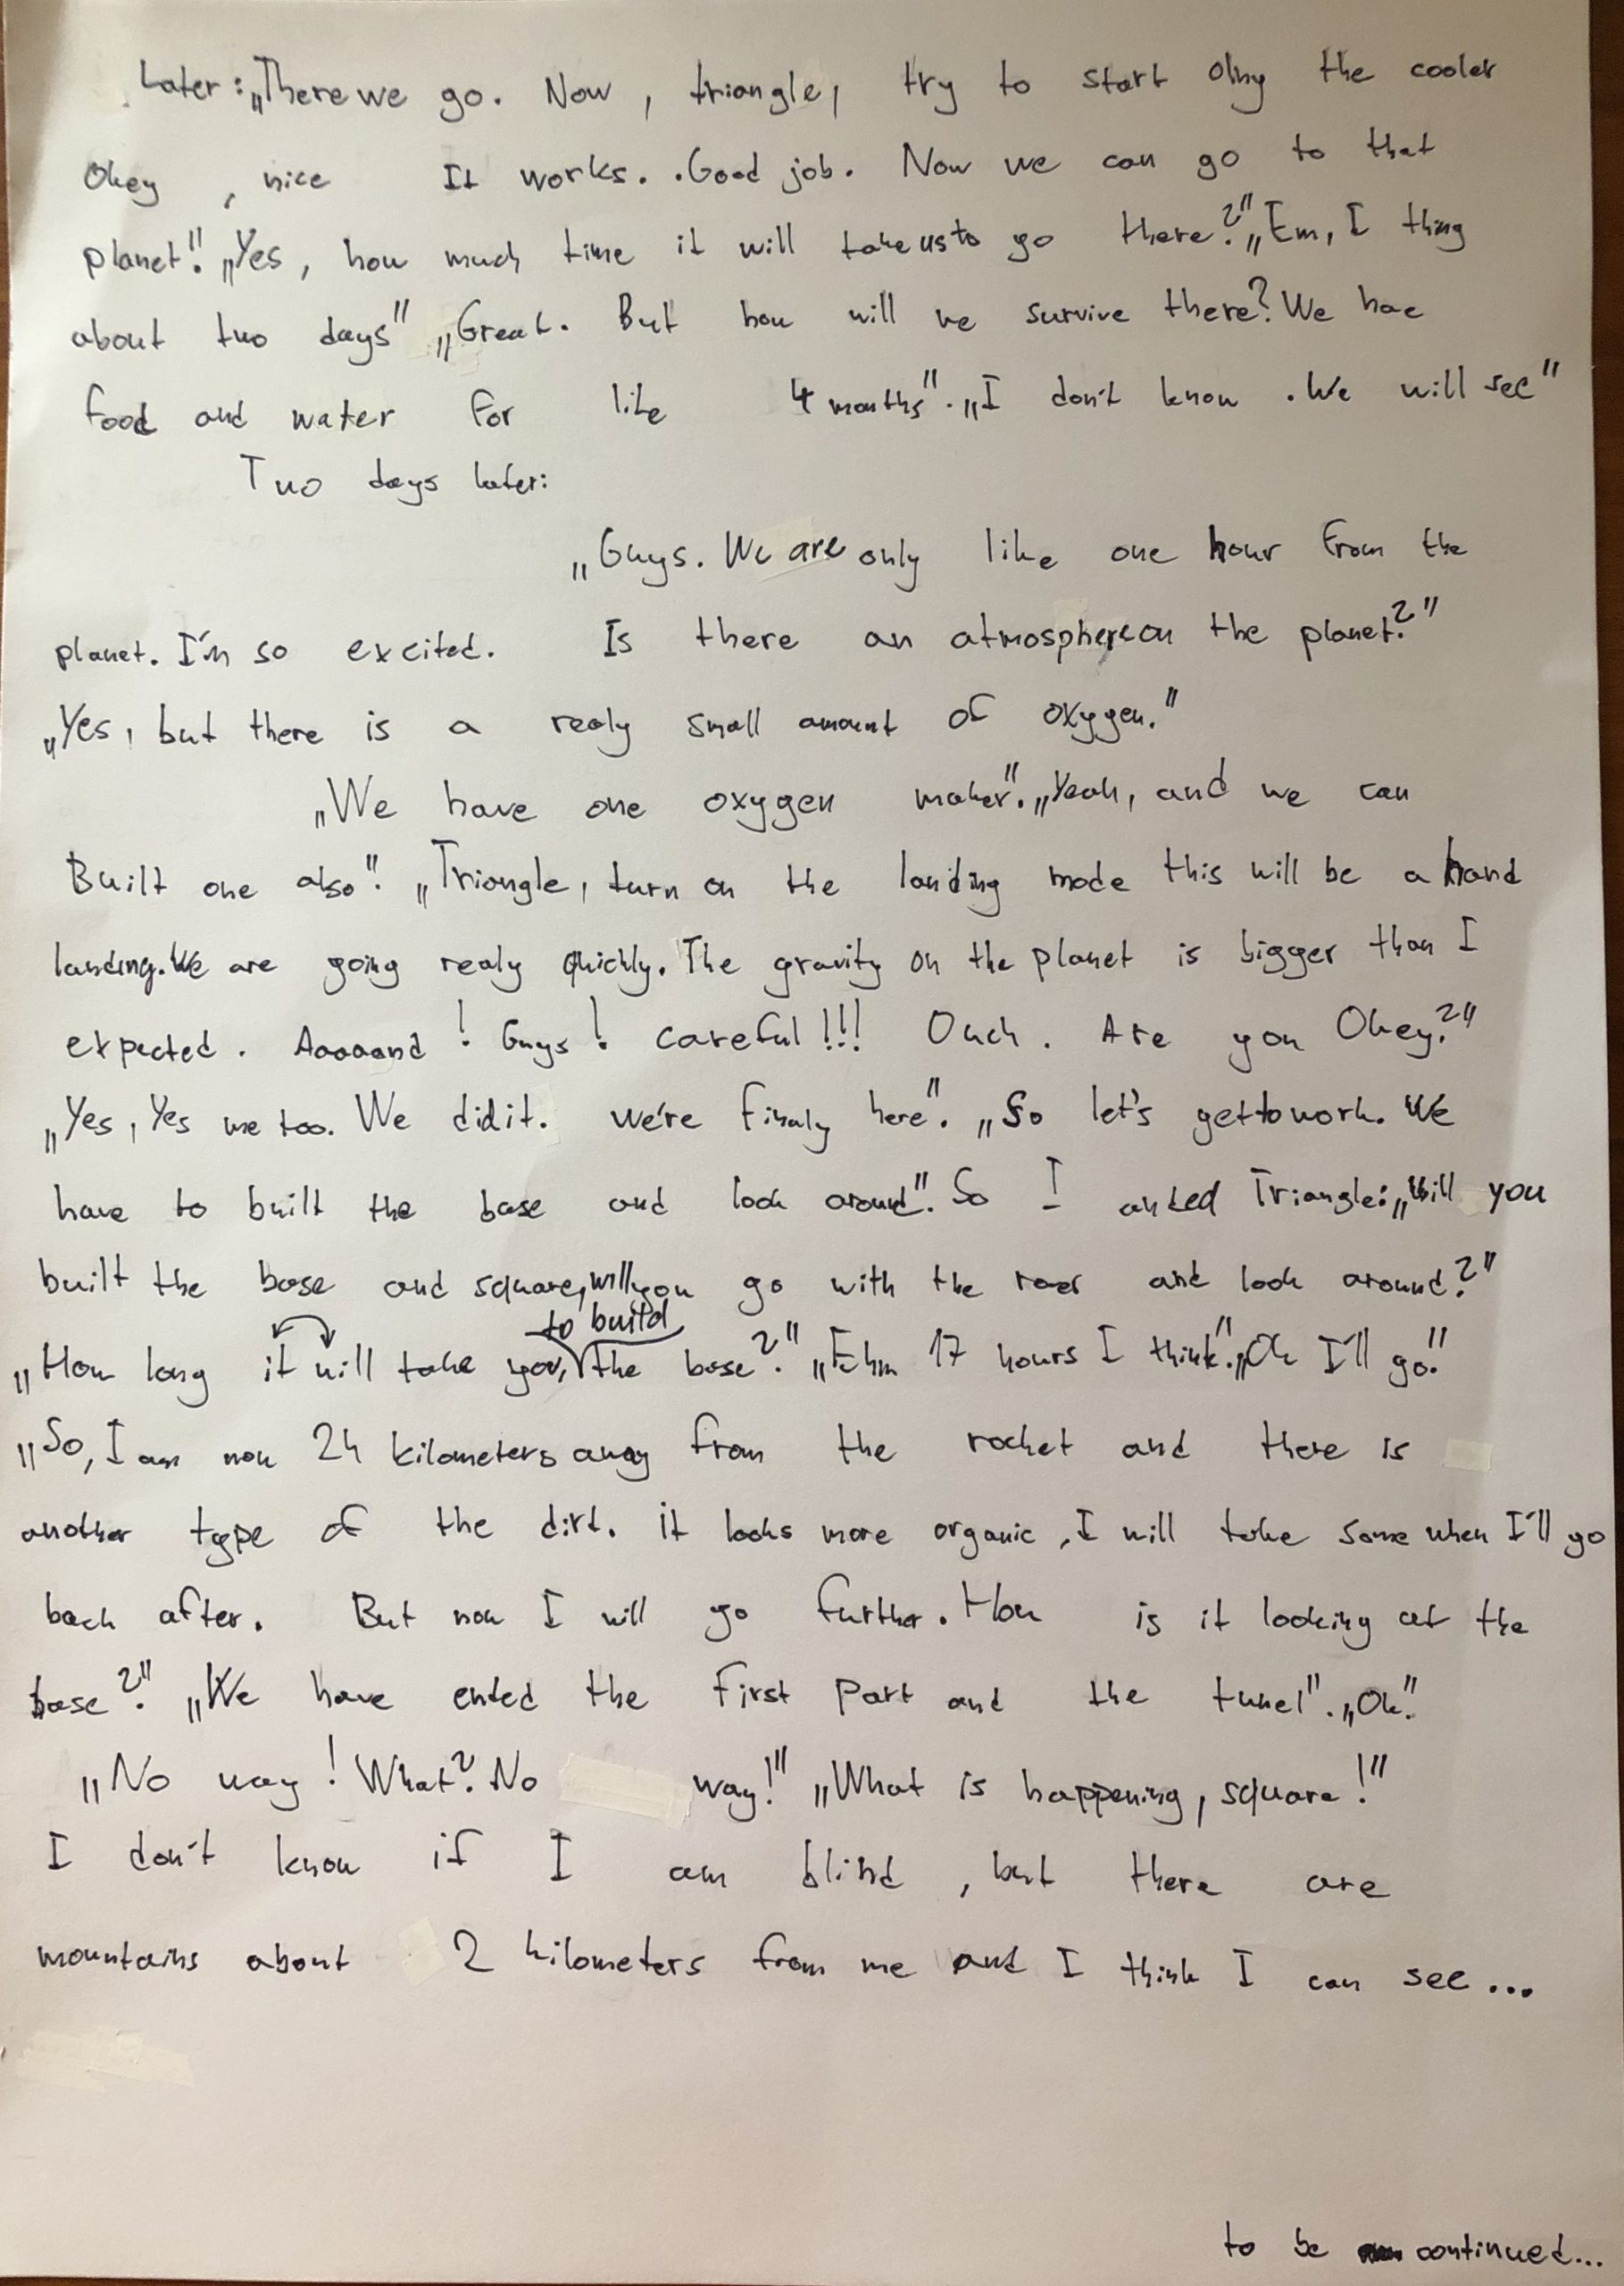 Later: „There we go. Now, triangle, try to start olny the cooler
Okey, nice It works. Good job. Now we can go to that
planet". „Yes, how much time it will take us to go there?" „Em, I thing
about two days" „Great. But how will we survive there? We hae
food and water for like 4 months". „I don't know. We will see"
Two days later:
„Guys. We are only like one hour from the
planet. I'm so excited. Is there an atmosphere on the planet?"
„Yes, but there is a realy small amount of oxygen."
„We have one oxygen maker". „Yeah, and we can
Built one also". „Triangle, turn on the landing mode this will be a hand
landing. We are going realy quickly. The gravity on the planet is bigger than I
expected. Aaaaand! Guys! careful!!! Ouch. Are you Okey?"
„Yes, Yes me too. We did it. We're finaly here". „So let's get to work. We
have to built the base and look around". So I asked Triangle: „Will you
built the base and square, will you go with the and look around?"
to build
„How long it will take you, the base?" „Ehm 17 hours I think". „Ok I'll go."
„So, I am now 24 kilometers away from the rocket and there is
another type of the dirt. it looks more organic, I will take some when I'll go
back after. But now I will go further. How is it looking at the
base?" „We have ented the first part and the tunel". „Ok".
„No way! What? No way!" „What is happening, square!"
I don't know if I am blind, but there are
mountains about 2 kilometers from me and I think I can see...
to be continued...